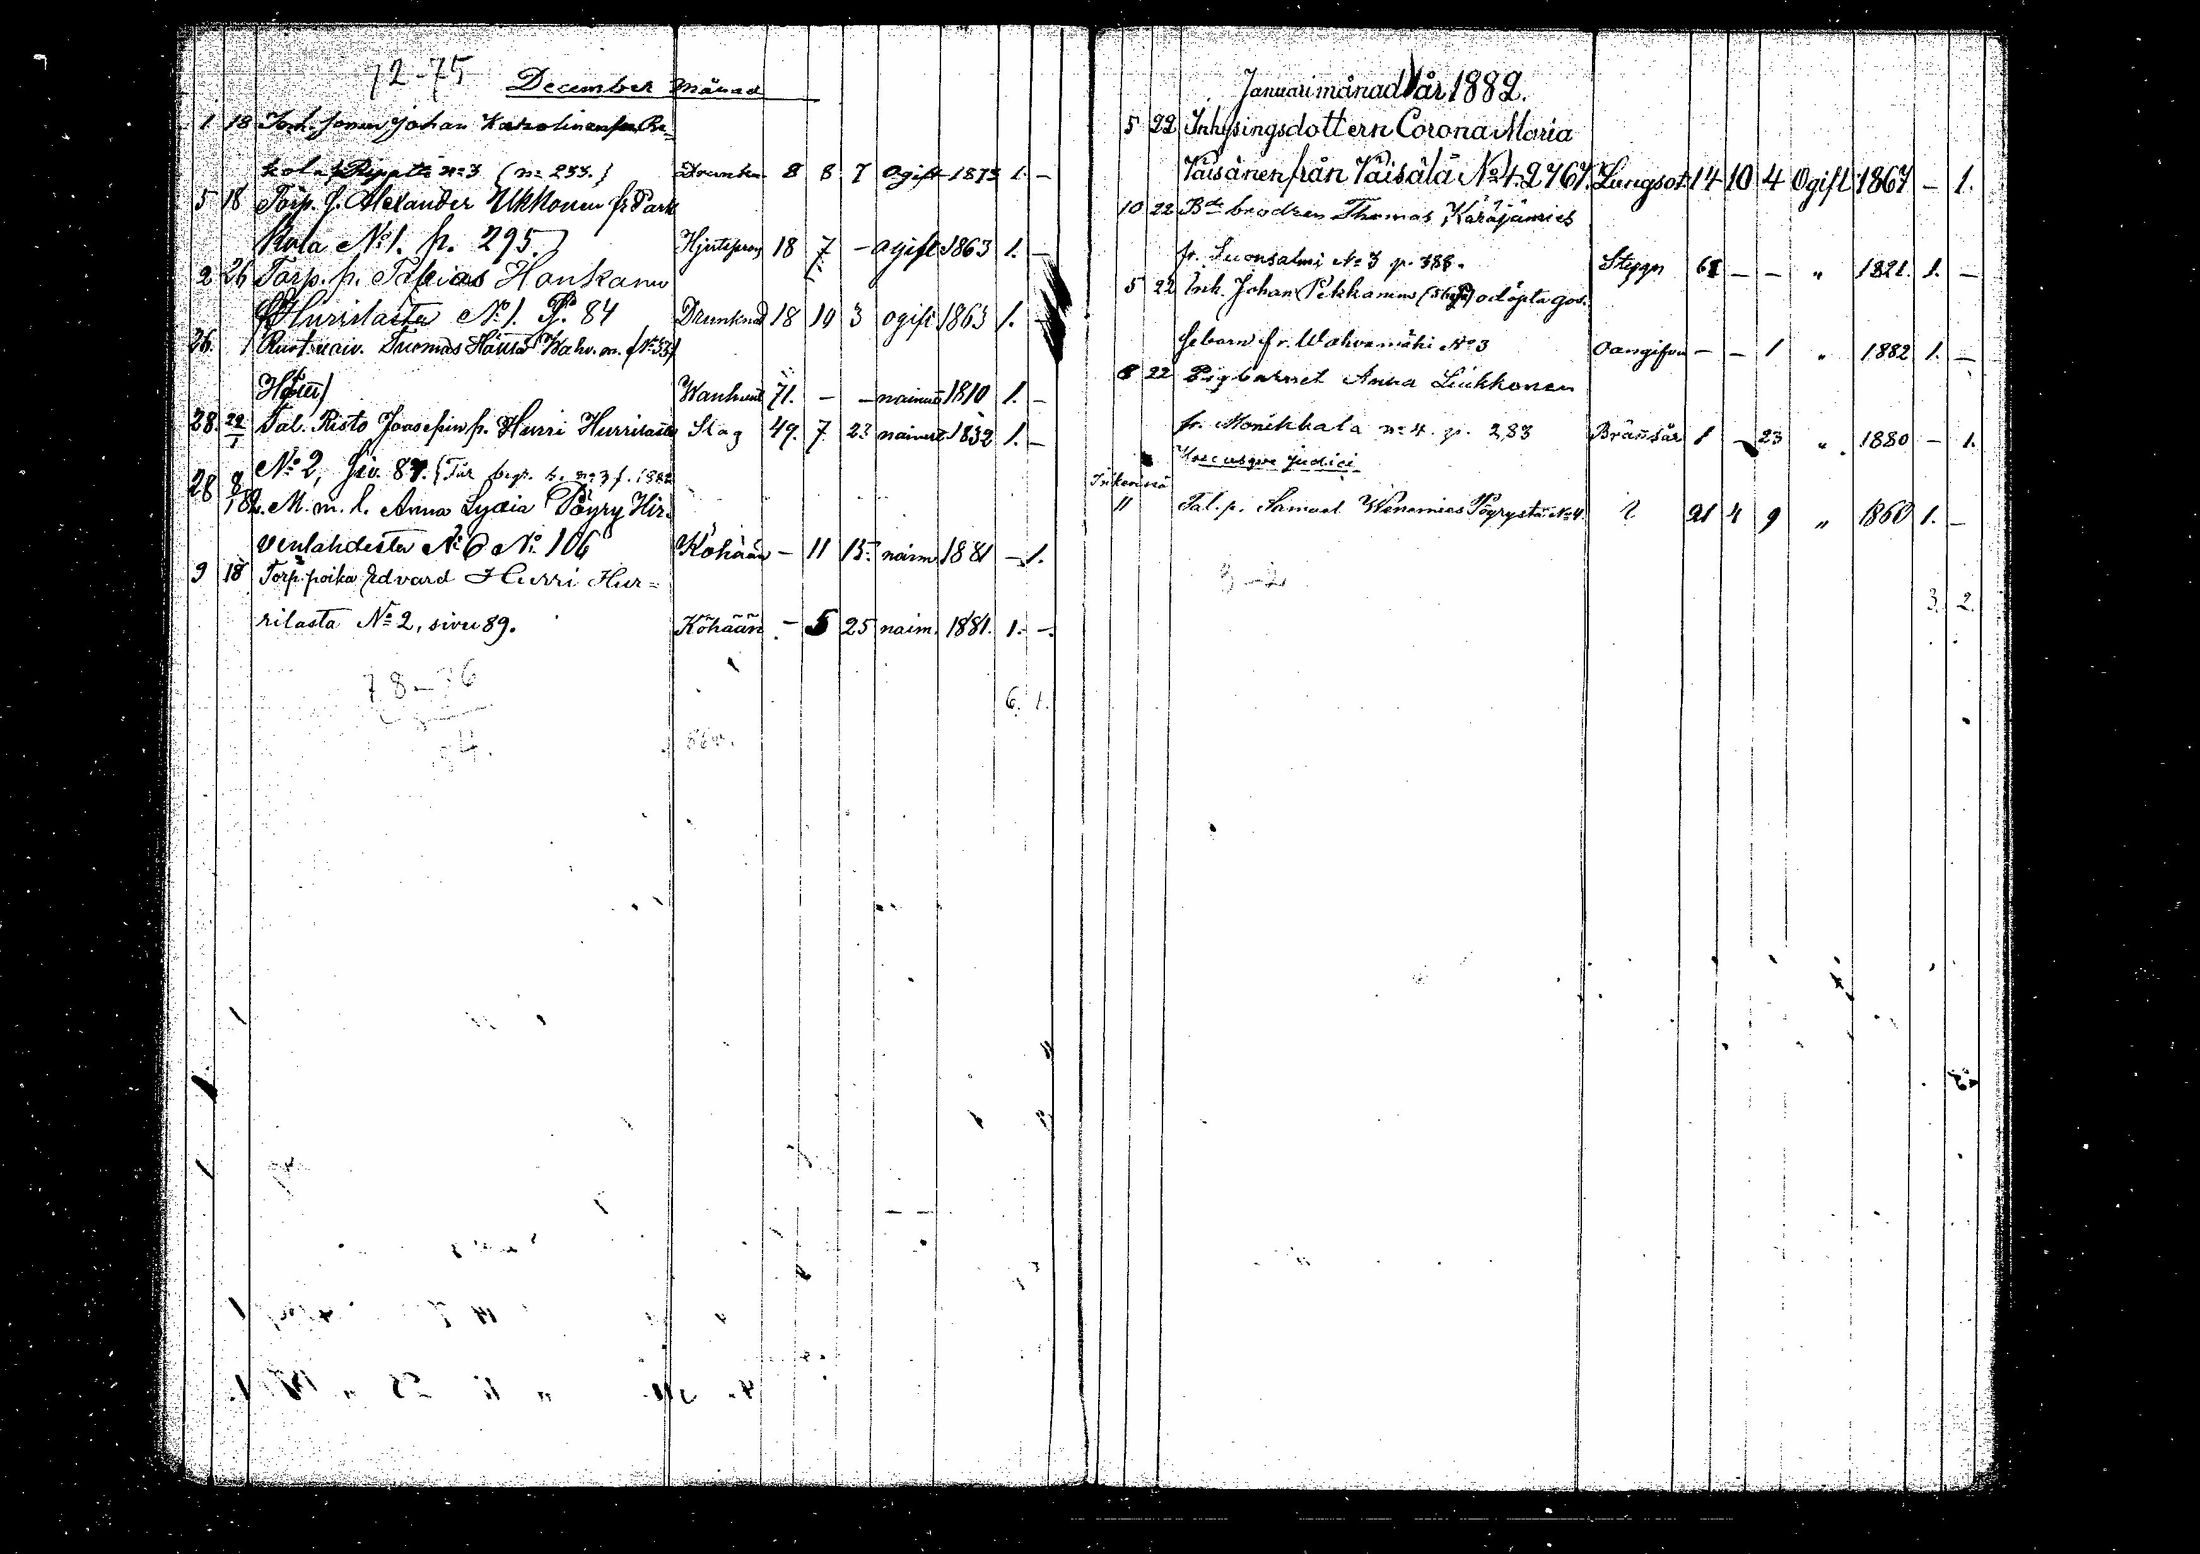 72-75
December Månad
1 18 Torp. sonen Johan Karolinen fr. Pa-
kola Ripatti No 3 (No 253.) Drunkn. 8 8 7 Ogift 1873 1. —
5 18 Torp. s. Alexander Ukkonen fr. Park
kola No 1. p. 295. Hjertepron 18 7 — ogift 1863 1. —
2 26 Torp. p. Tobias Honkanen
Hurrilasta No 1. p. 84 Drunknad 18 10 3 ogift 1863 1. —
26. 1 Ruot. vaiv. Tuomas Häusä Wahv. m.
Wanhuut. 71. — — nainut 1810 1. —
28. 22/1 Tal. Risto Joosefinp. Hurri Hurrilasta Slag 49. 7 23 nainut 1832 1. —
No 2, siv. 87.
28 8/1 82. M. m. l. Anna Lydia Pöyry Hir-
venlahdesta No 6 No 106 Köhään — 11 15. naim. 1881 — 1.
9 18 Torp. poika Edvard Hurri Hur=
rilasta No 2, sivu 89. Köhään — 5 25 naim. 1881. 1. —
78-76
6. 1.
4.
Januari månad år 1882.
5 22 Inhysingsdottern Corona Maria
Väisänen från Väisälä No 4. 2767. Lungsot. 14 10 4 Ogift 1867 — 1.
10 22 Bde brodren Thomas Käräjämies
fr. Suonsalmi No 3 p. 388. Styggn 61 — — " 1821. 1. —
5 22 Inh. Johan Pekkanens odöpta gos.
sebarn fr. Wahvamäki No 3 Oangifven — — 1 " 1882 1. —
8 22 Pigbarnet Anna Liukkonen
fr. Monikkala No 4. p. 283 Brännsår 1 — 23 " 1880 — 1.
judici
" Tal. p. Samuel Wenonies Pöyrystä No 4. ? 21 4 9 " 1860 1. —
3-2
3. 2.